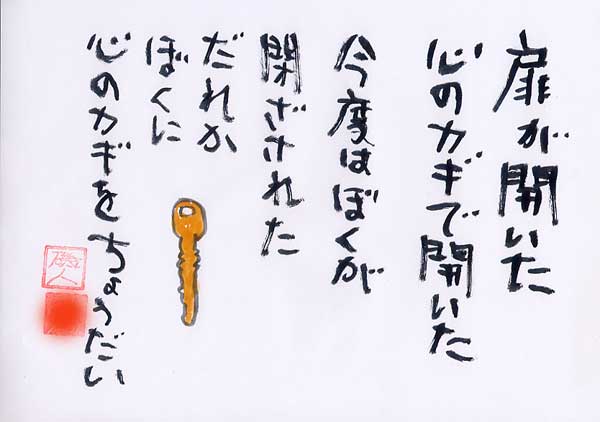 扉が開いた
心のカギで開いた
今度はぼくが
閉ざされた
だれか
ぼくに
心のカギをちょうだい